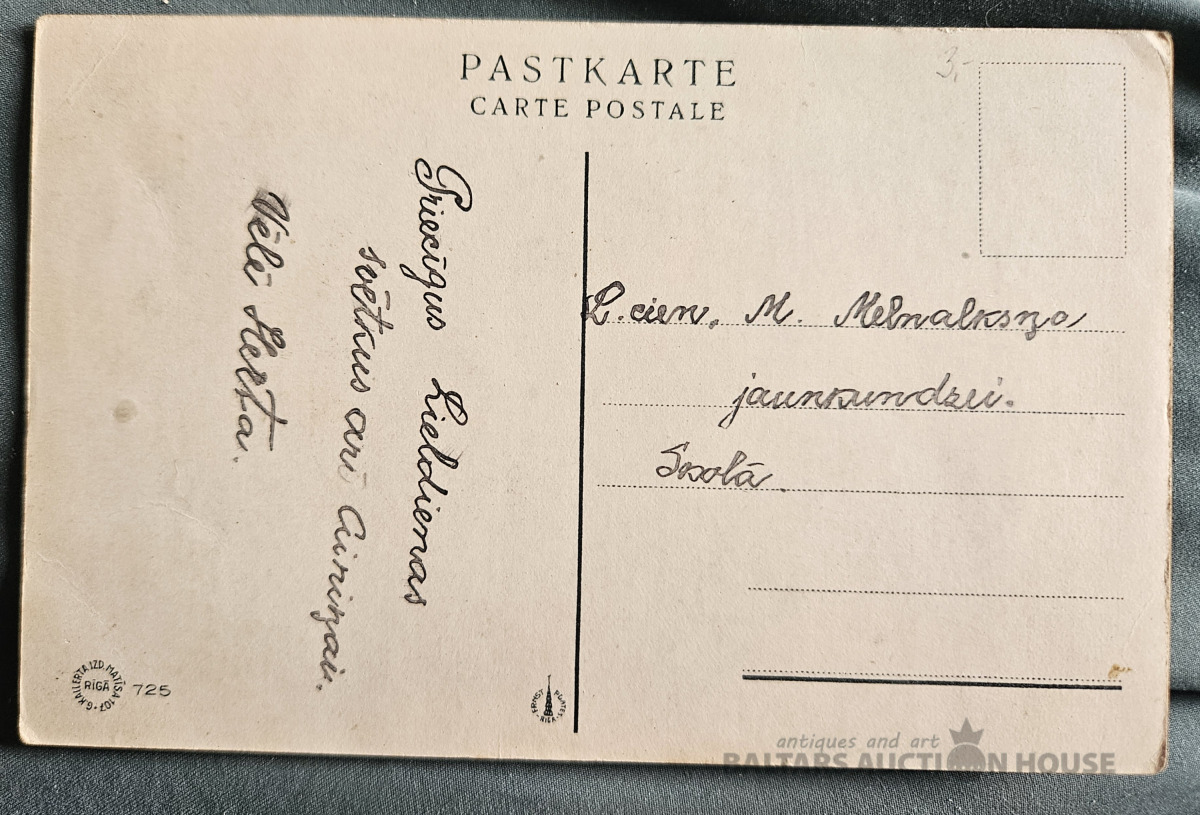 PASTKARTE
CARTE POSTALE
3.-
Priecīgus Lieldienas
svētkus arī Airiņai.
Vēlē Herta.
L.cien. M. Melnalksņa
jaunkundzei.
Skolā.
G. KALLERTA IZD. MATĪSA 107
RĪGĀ
725
ERNST PLATES
RIGA
antiques and art
BALTARS AUCTION HOUSE